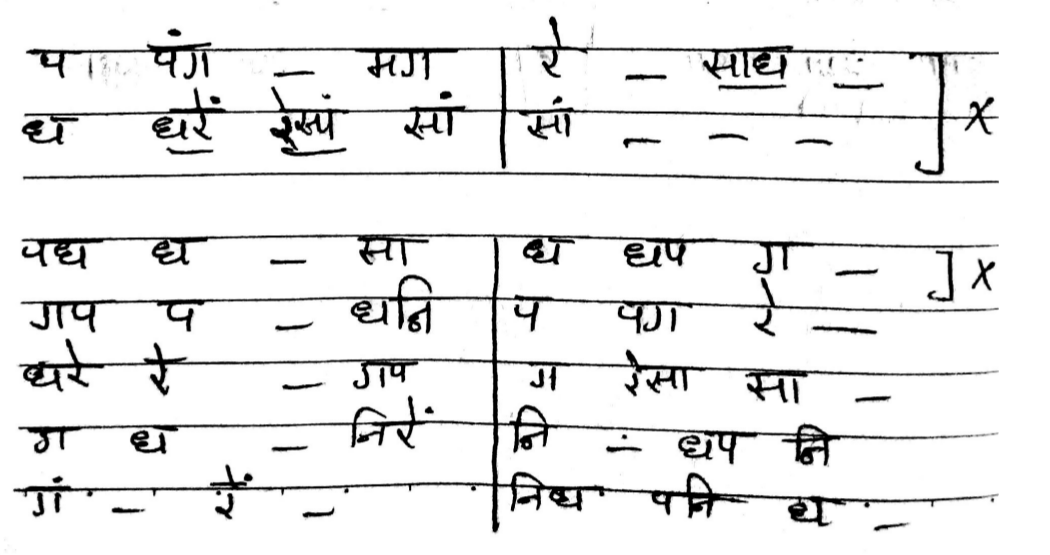 प पंग – मग | रे – साध –
ध धरें रेंसां सां | सां – – – ] x
पध ध – सा | ध धप ग – ] x
गप प – धनि | प पग रे –
धरे रे – गप | ग रेसा सा –
ग ध – निरें | नि – धप नि
गं – रें – | निध पनि ध –